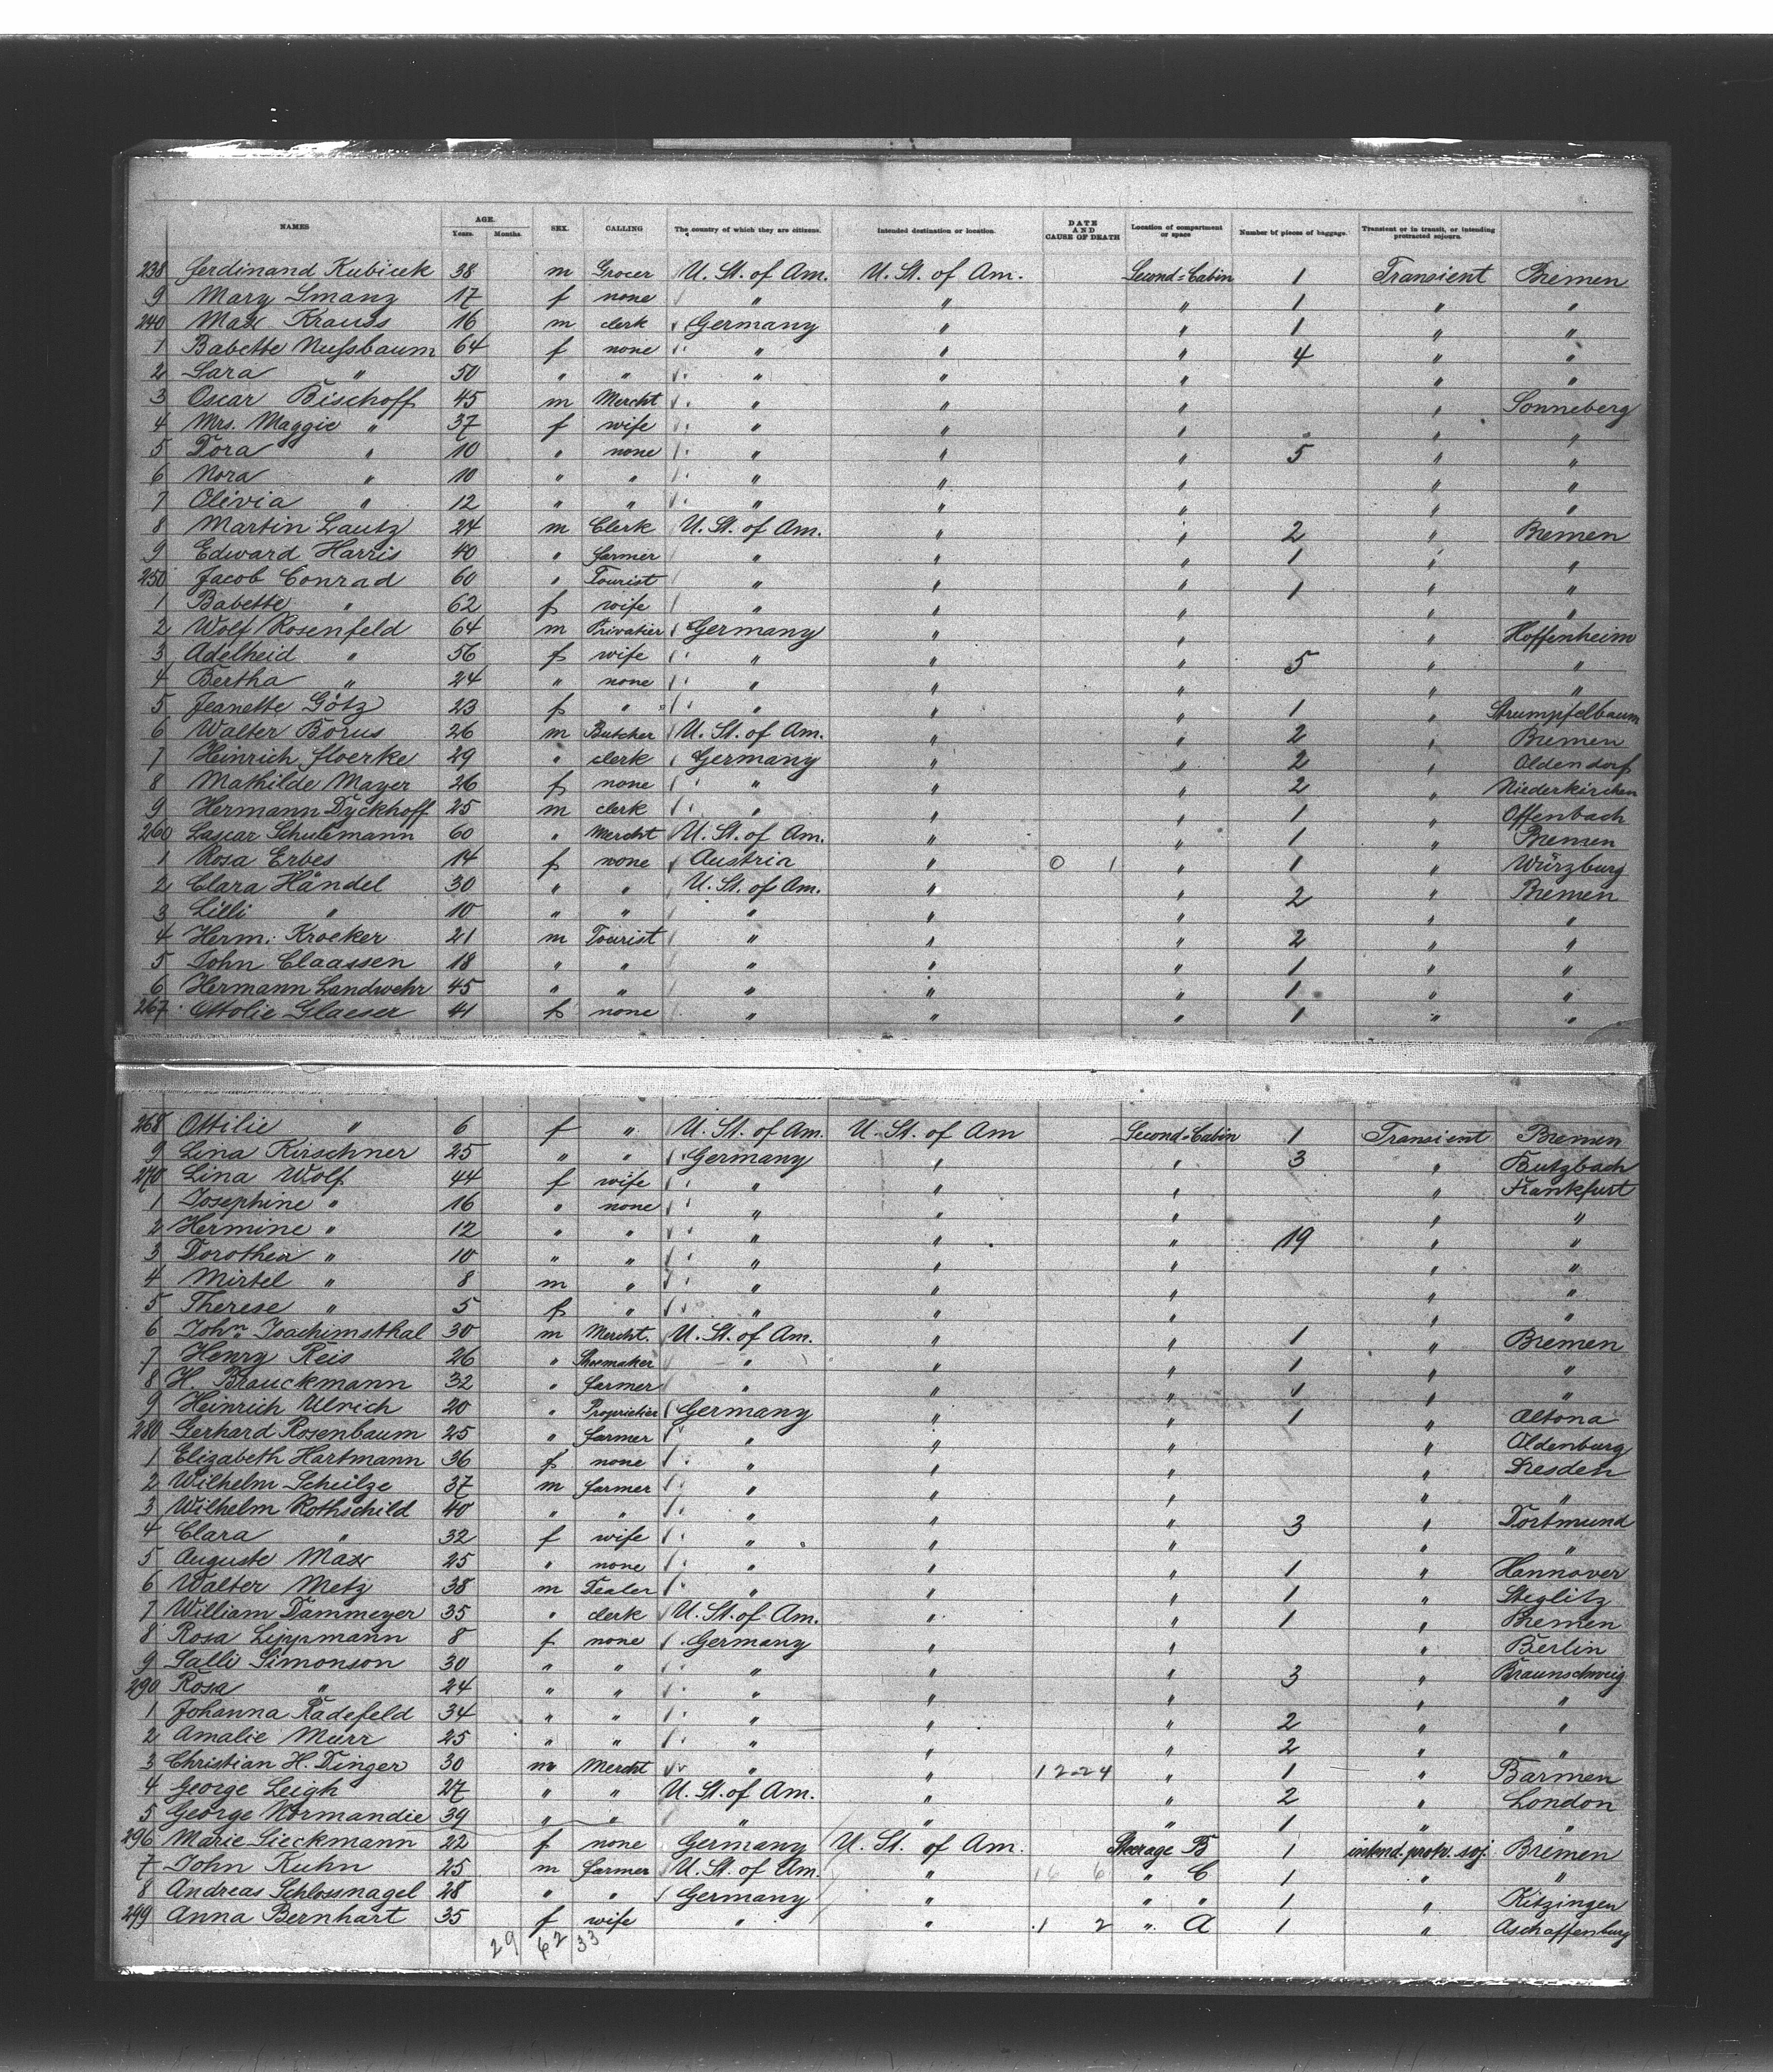 NAMES AGE. Years. Months. SEX. CALLING The country of which they are citizens. Intended destination or location. DATE AND CAUSE OF DEATH Location of compartment or space Number of pieces of baggage. Transient or in transit, or intending protracted sojourn.
238 Ferdinand Kubicek 38 m Grocer U. St. of Am. U. St. of Am. Second=Cabin 1 Transient Bremen
9 Mary Smanz 17 f none " " " 1 " "
240 Max Krauss 16 m clerk Germany " " 1 " "
1 Babette Nussbaum 64 f none " " " 4 " "
2 Sara " 50 " " " " " " "
3 Oscar Bischoff 45 m Mercht " " " " Sonneberg
4 Mrs. Maggie " 37 f wife " " " " "
5 Dora " 10 " none " " " 5 " "
6 Nora " 10 " " " " " " "
7 Olivia " 12 " " " " " " "
8 Martin Lautz 24 m Clerk U. St. of Am. " " 2 " Bremen
9 Edward Harris 40 " farmer " " " 1 " "
250 Jacob Conrad 60 " Tourist " " " 1 " "
1 Babette " 62 f wife " " " " "
2 Wolf Rosenfeld 64 m Privatier Germany " " " Hoffenheim
3 Adelheid " 56 f wife " " " 5 " "
4 Bertha " 24 " none " " " " "
5 Jeanette Götz 23 f " " " " 1 " Strumpfelbaum
6 Walter Borus 26 m Butcher U. St. of Am. " " 2 " Bremen
7 Heinrich Floerke 29 " clerk Germany " " 2 " Oldendorf
8 Mathilde Mayer 26 f none " " " 2 " Niederkirchen
9 Hermann Dyckhoff 25 m clerk " " " 1 " Offenbach
260 Lascar Schulemann 60 " Mercht U. St. of Am. " " 1 " Bremen
1 Rosa Erbes 14 f none Austria " 0 1 " 1 " Würzburg
2 Clara Händel 30 " " U. St. of Am. " " 2 " Bremen
3 Lilli " 10 " " " " " " "
4 Herm. Kroeker 21 m Tourist " " " 2 " "
5 John Claassen 18 " " " " " 1 " "
6 Hermann Landwehr 45 " " " " " 1 " "
267 Ottolie Glaeser 41 f none " " " 1 " "
268 Ottilie " 6 f " U. St. of Am. U. St. of Am Second=Cabin 1 Transient Bremen
9 Lina Kirschner 25 " " Germany " " 3 " Butzbach
270 Lina Wolf 44 f wife " " " " Frankfurt
1 Josephine " 16 " none " " " " "
2 Hermine " 12 " " " " " 19 " "
3 Dorothea " 10 " " " " " " "
4 Mirtel " 8 m " " " " " "
5 Therese " 5 f " " " " " "
6 John Joachimsthal 30 m Mercht. U. St. of Am. " " 1 " Bremen
7 Henry Reis 26 " Shoemaker " " " 1 " "
8 H. Brauckmann 32 " farmer " " " 1 " "
9 Heinrich Ulrich 20 " Proprietier Germany " " 1 " Altona
280 Gerhard Rosenbaum 25 " farmer " " " " Oldenburg
1 Elizabeth Hartmann 36 f none " " " " Dresden
2 Wilhelm Schulze 37 m farmer " " " " "
3 Wilhelm Rothschild 40 " " " " " 3 " Dortmund
4 Clara " 32 f wife " " " " "
5 Auguste Max 25 " none " " " 1 " Hannover
6 Walter Metz 38 m Dealer " " " 1 " Steglitz
7 William Dammeyer 35 " clerk U. St. of Am. " " 1 " Bremen
8 Rosa Lippmann 8 f none Germany " " " Berlin
9 Salli Simonson 30 " " " " " 3 " Braunschweig
290 Rosa " 24 " " " " " " "
1 Johanna Radefeld 34 " " " " " 2 " "
2 Amalie Murr 25 " " " " " 2 " "
3 Christian H. Dinger 30 m Mercht " " 12-24 " 1 " Barmen
4 George Leigh 27 " " U. St. of Am. " " 2 " London
5 George Normandie 39 " " " " " 1 " "
296 Marie Sieckmann 22 f none Germany U. St. of Am. Steerage B 1 intend. protr. soj. Bremen
7 John Kuhn 25 m farmer U. St. of Am. " 16 6 " C 1 " "
8 Andreas Schlossnagel 28 " " Germany " " " 1 " Kitzingen
299 Anna Bernhart 35 f wife " " 1 2 " A 1 " Aschaffenburg
29 62 33